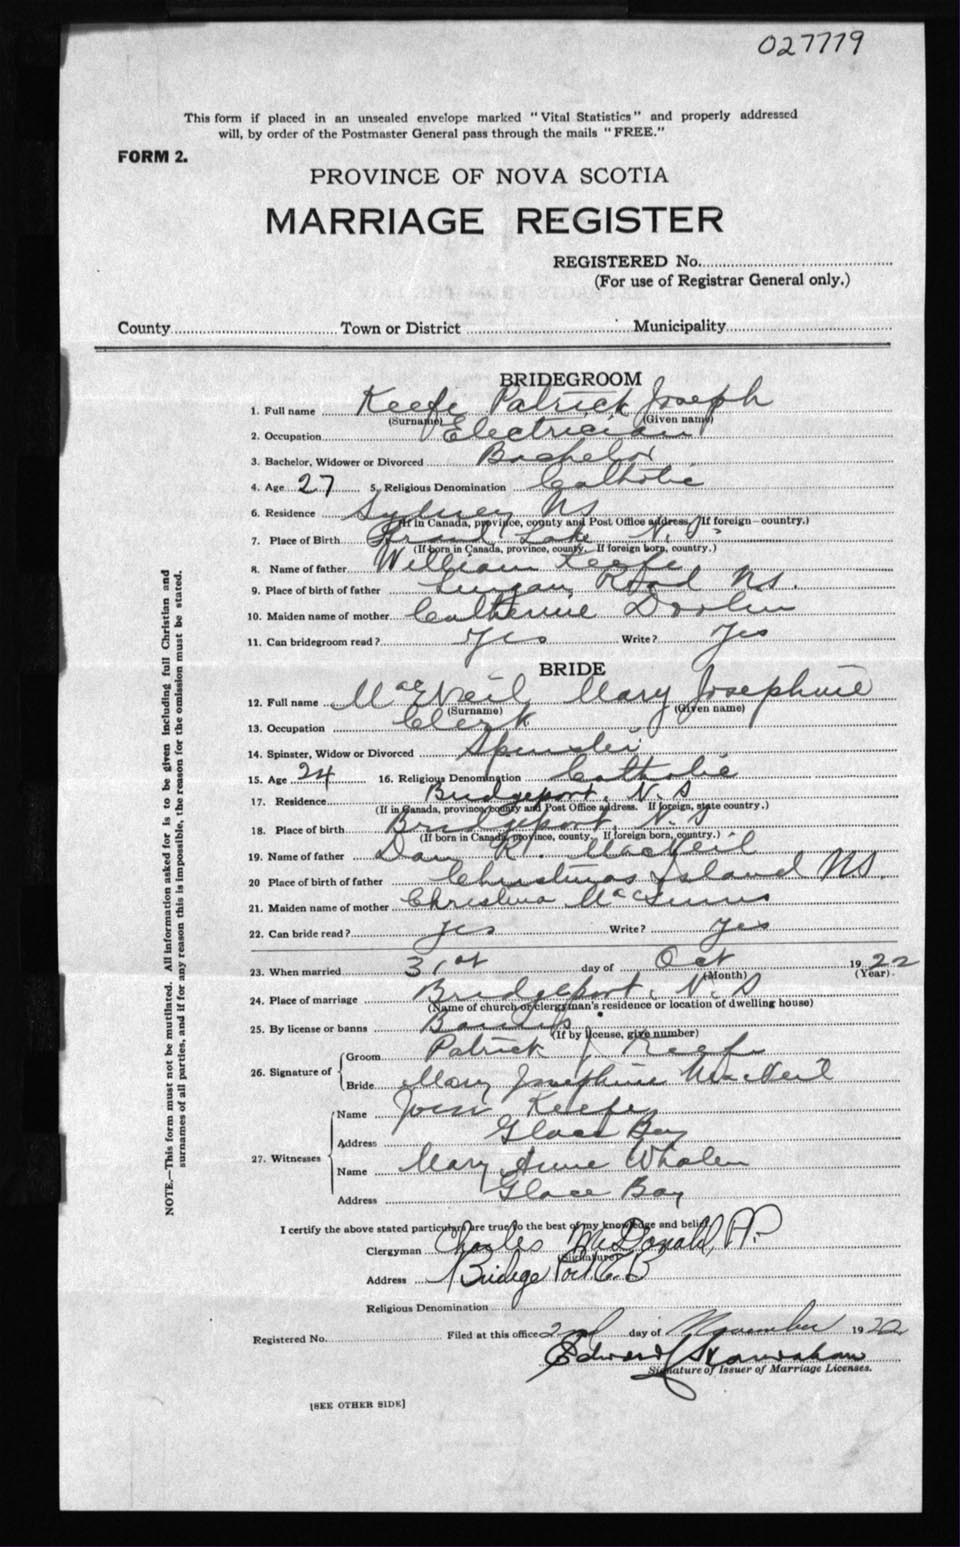 027779
This form if placed in an unsealed envelope marked "Vital Statistics" and properly addressed
will, by order of the Postmaster General pass through the mails "FREE."
FORM 2.
PROVINCE OF NOVA SCOTIA
MARRIAGE REGISTER
REGISTERED No.
(For use of Registrar General only.)
County Town or District Municipality
BRIDEGROOM
1. Full name Keefe Patrick Joseph
(Surname) (Given name)
2. Occupation Electrician
3. Bachelor, Widower or Divorced Bachelor
4. Age 27 5. Religious Denomination Catholic
6. Residence Sydney NS
(If in Canada, province, county and Post Office address. If foreign—country.)
7. Place of Birth Grand Lake N.S.
(If born in Canada, province, county. If foreign born, country.)
8. Name of father William Keefe
9. Place of birth of father Lingan Road NS.
10. Maiden name of mother Catherine
11. Can bridegroom read? Yes Write? Yes
BRIDE
12. Full name MacNeil Mary Josephine
(Surname) (Given name)
13. Occupation Clerk
14. Spinster, Widow or Divorced Spinster
15. Age 24 16. Religious Denomination Catholic
17. Residence Bridgeport, N.S
(If in Canada, province, county and Post Office address. If foreign, state country.)
18. Place of birth Bridgeport, N.S
(If born in Canada, province, county. If foreign born, country.)
19. Name of father Dan R. MacNeil
20 Place of birth of father Christmas Island NS.
21. Maiden name of mother Christina
22. Can bride read? Yes Write? Yes
23. When married 31st day of Oct 1922
(Month) (Year)
24. Place of marriage Bridgeport, N.S
(Name of church or clergyman's residence or location of dwelling house)
25. By license or banns
(If by license, give number)
26. Signature of
Groom Patrick J Keefe
Bride Mary Josephine MacNeil
27. Witnesses
Name Keefe
Address Glace Bay
Name Mary Anne Whalen
Address Glace Bay
I certify the above stated particulars are true to the best of my knowledge and belief.
Clergyman Charles McDonald, P.P.
(Signature)
Address Bridge Port C.B
Religious Denomination
Registered No. Filed at this office 2nd day of November 1922
Edward
Signature of Issuer of Marriage Licenses.
[SEE OTHER SIDE]
NOTE.—This form must not be mutilated. All information asked for is to be given including full Christian and
surnames of all parties, and if for any reason this is impossible, the reason for the omission must be stated.